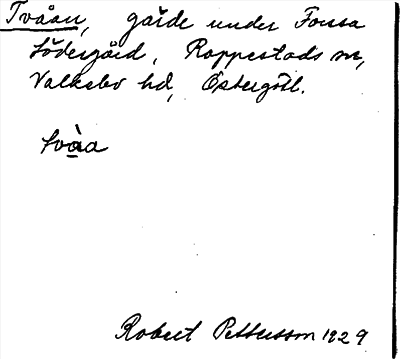 Tvåan, gärde under Forssa
Södergård, Rappestads sn,
Valkebo hd, Östergötl.
tvȧ̀a
Robert Pettersson 1929